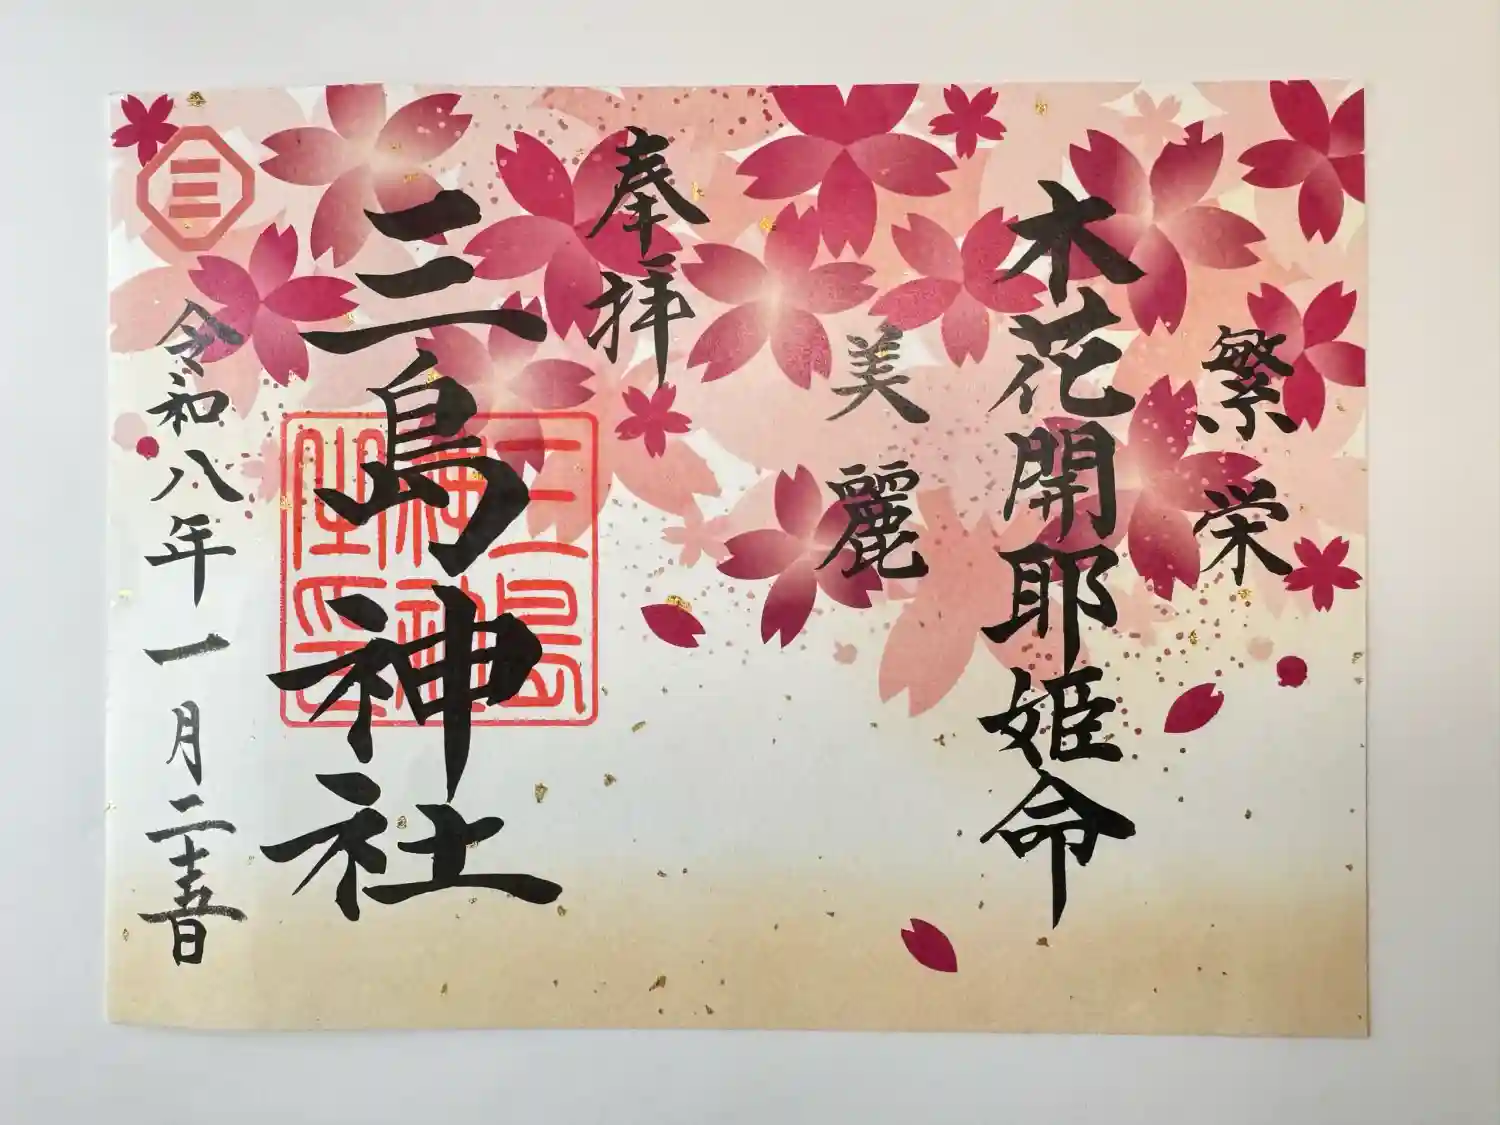 繁栄
木花開耶姫命
美麗
奉拝
三島神社
三島神社之印
三
令和八年一月二十五日